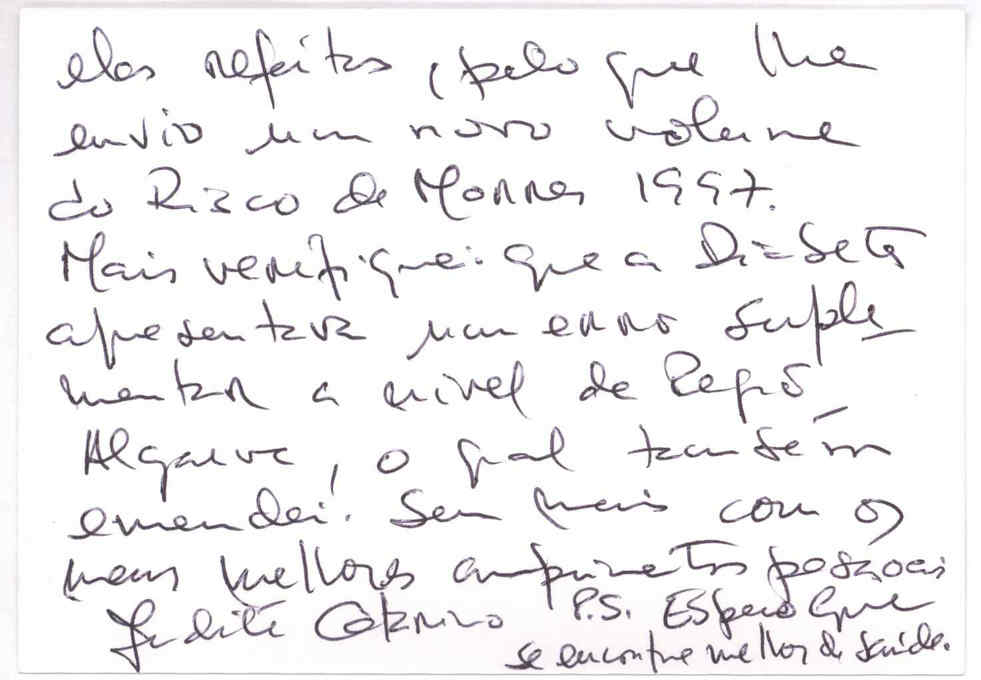 elas refeitas, pelo que lhe
envio um novo volume
do Risco de Morrer 1997.
Mais verifiquei que a Diabetes
apresentava um erro suple
mentar a nível de Região
Algarve, o qual também
emendei. Sem mais com os
meus melhores cumprimentos pessoais
Judite
P.S. Espero que
se encontre melhor de saúde.